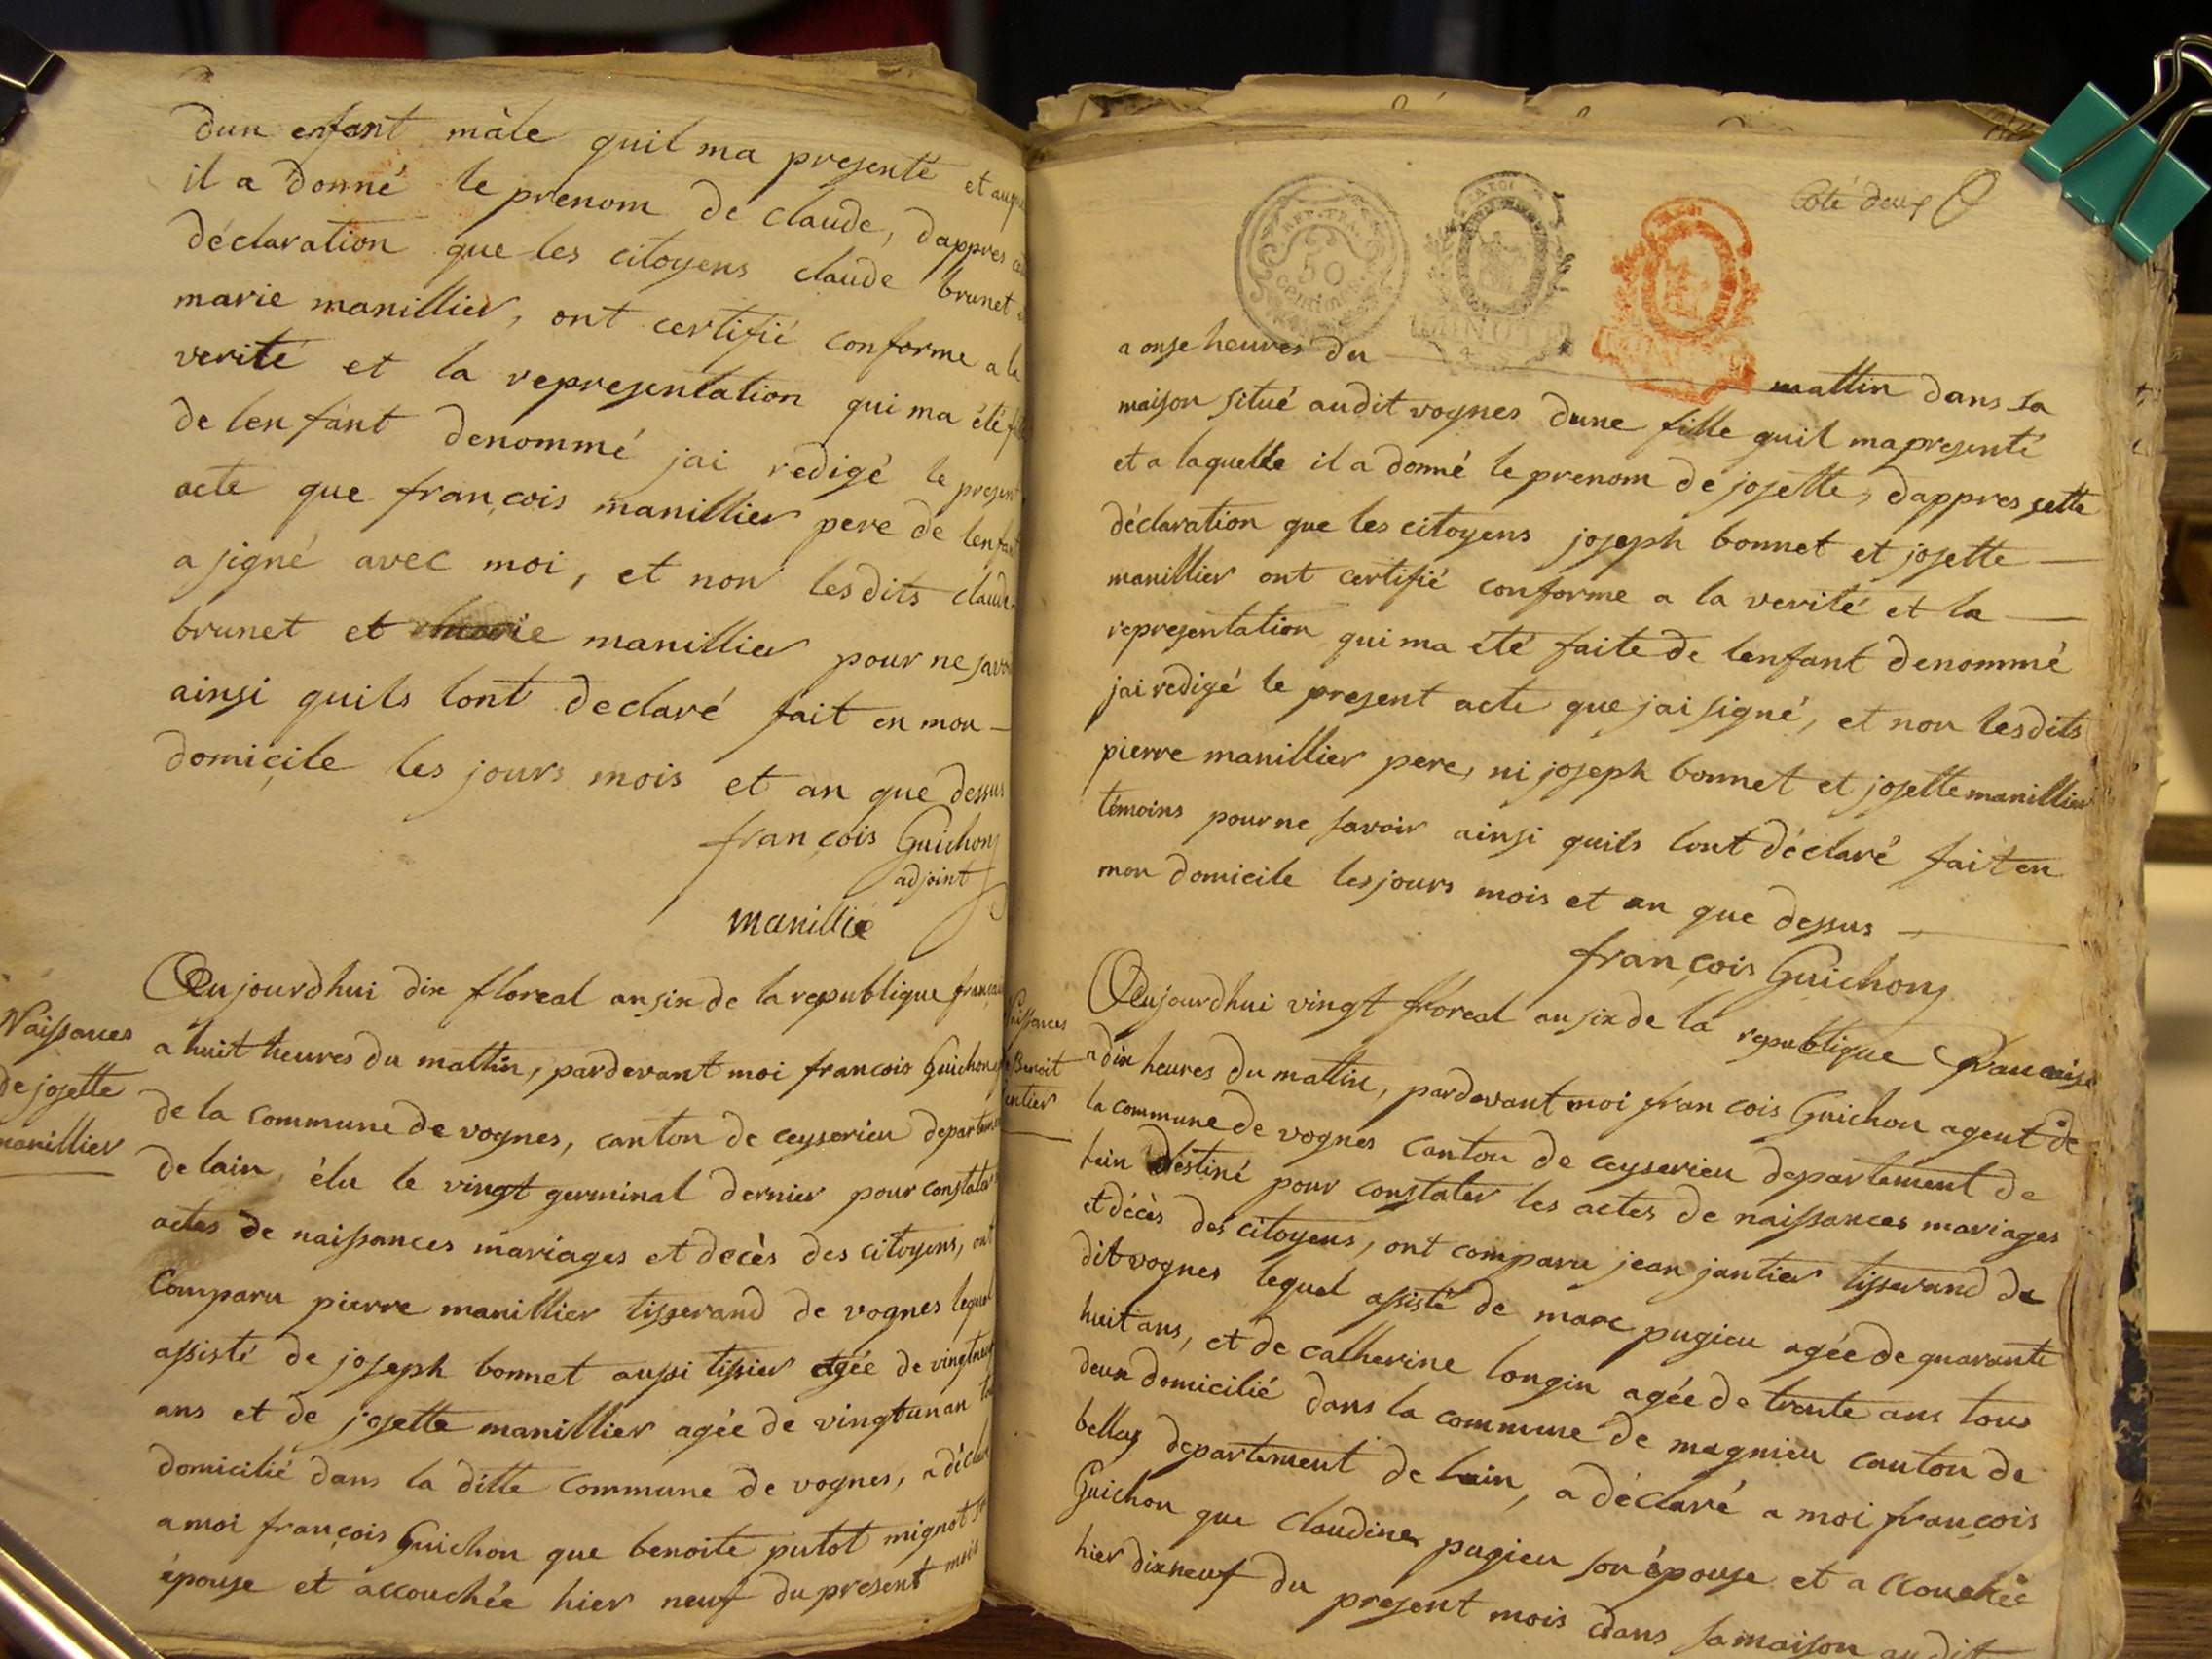 dun enfant mâle quil ma presenté et auq
il a donné le prenom de claude, dappres
déclaration que les citoyens claude brunet
marie manillier, ont certifié conforme a la
verité et la representation qui ma été
de lenfant denommé jai redigé le present
acte que françois manillier pere de lenfant
a signé avec moi, et non lesdits claude
brunet et marie manillier pour ne savoir
ainsi quils lont declaré fait en mon
domicile les jours mois et an que dessus
françois Guichon
adjoint
manillié
Naissances
de josette
manillier
Aujourdhui dix floreal an six de la republique français
a huit heures du mattin, pardevant moi francois Guichon
de la commune de vognes, canton de ceyserieu departem
de lain, élu le vingt germinal dernier pour constater
actes de naissances mariages et decès des citoyens, ont
Comparu pierre manillier tisserand de vognes lequel
assisté de joseph bonnet aussi tissier agée de vingtneuf
ans et de josette manillier agée de vingtunan
domicilié dans la ditte commune de vognes, a déclaré
a moi françois Guichon que benoite putot mignot
épouse et accouchée hier neuf du present mois
Coté deux
50
centimes
a onse heures du mattin dans sa
maison situé audit vognes dune fille quil ma presenté
et a laquelle il a donné le prenom de josette, dappres cette
déclaration que les citoyens joseph bonnet et josette
manillier ont certifié conforme a la verité et la
representation qui ma été faite de lenfant denommé
jai redigé le present acte que jai signé, et non lesdits
pierre manillier pere, ni joseph bonnet et josette manillier
témoins pour ne savoir ainsi quils lont déclaré fait en
mon domicile les jours mois et an que dessus
françois Guichon
Naissances
Benoit
jantier
Aujourdhui vingt floreal an six de la republique francaise
a dix heures du mattin, pardevant moi francois Guichon agent de
la commune de vognes canton de ceyserieu departement de
lain destiné pour constater les actes de naissances mariages
et décès des citoyens, ont comparu jean jantier tisserand de
dit vognes lequel assisté de marc pugieu agée de quarante
huit ans, et de catherine longin agée de trente ans tous
deux domicilié dans la commune de magnieu canton de
belley departement de lain, a déclaré a moi françois
Guichon que claudine pugieu son épouse et accouchée
hier dixneuf du present mois dans sa maison audit